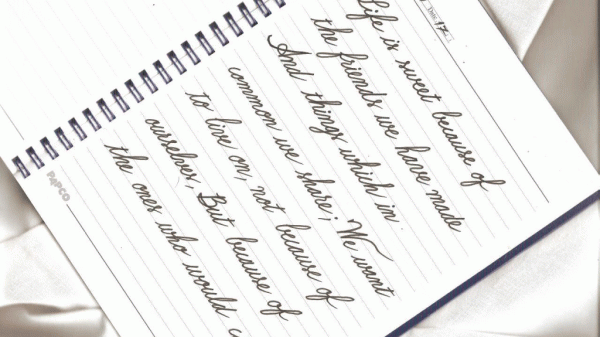 Date: 17
Life is sweet because of
the friends we have made
And things which in
common we share; We want
to live on, not because of
ourselves, But because of
the ones who would
PAPCO